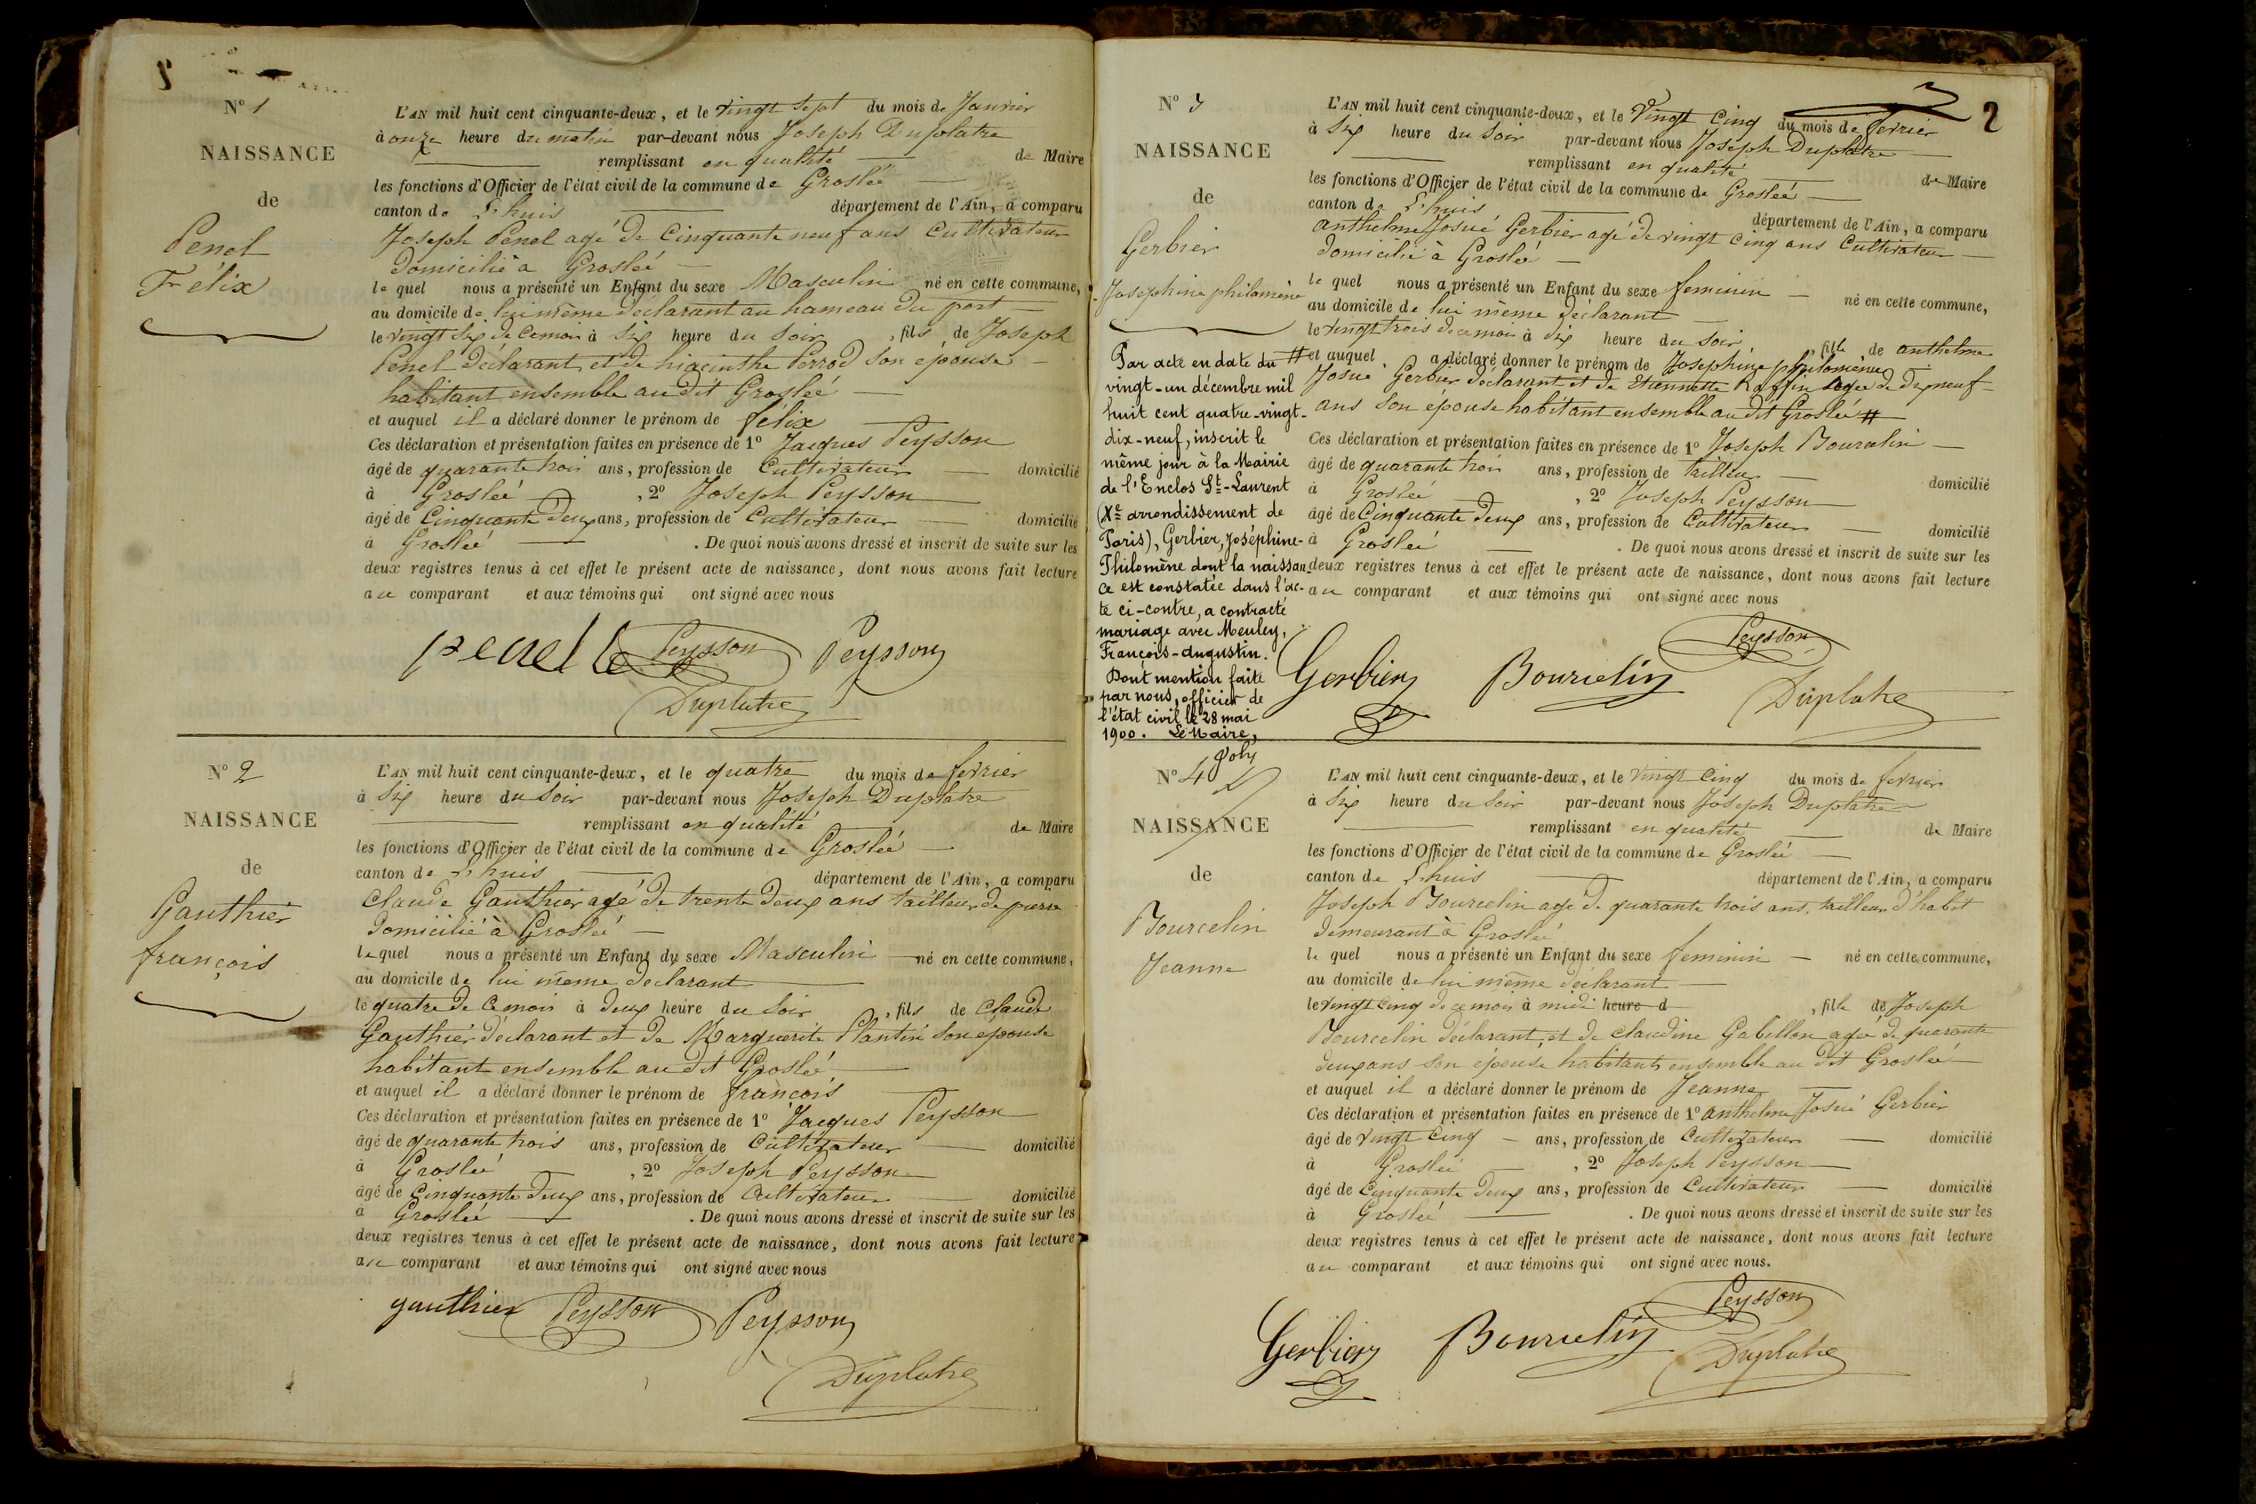 N° 1
NAISSANCE
de
Penel
Félix
L'AN mil huit cent cinquante-deux, et le vingt sept du mois de Janvier
à onze heure du matin par-devant nous Joseph Duplatre
remplissant en qualité de Maire
les fonctions d'Officier de l'état civil de la commune de Groslée
canton de Lhuis département de l'Ain, a comparu
Joseph Penel agé de Cinquante neuf ans Cultivateur
Domicilié à Groslée
le quel nous a présenté un Enfant du sexe Masculin né en cette commune,
au domicile de lui même déclarant au hameau du port
le vingt six de ce mois à six heure du soir, fils de Joseph
Penel déclarant et de hiacinthe Perrod son épouse
habitant ensemble au dit Groslée
et auquel il a déclaré donner le prénom de félix
Ces déclaration et présentation faites en présence de 1° Jacques Peysson
âgé de quarante trois ans, profession de Cultivateur domicilié
à Groslée, 2° Joseph Peysson
âgé de Cinquante Deux ans, profession de Cultivateur domicilié
à Groslée. De quoi nous avons dressé et inscrit de suite sur les
deux registres tenus à cet effet le présent acte de naissance, dont nous avons fait lecture
au comparant et aux témoins qui ont signé avec nous
Peysson Peysson
Duplatre
N° 2
NAISSANCE
de
Gauthier
françois
L'AN mil huit cent cinquante-deux, et le quatre du mois de fevrier
à six heure du soir par-devant nous Joseph Duplatre
remplissant en qualité de Maire
les fonctions d'Officier de l'état civil de la commune de Groslée
canton de Lhuis département de l'Ain, a comparu
Claude Gauthier agé de trente deux ans tailleur de pierre
Domicilié à Groslée
le quel nous a présenté un Enfant du sexe Masculin né en cette commune,
au domicile de lui même déclarant
le quatre de ce mois à deux heure du soir, fils de Claude
Gauthier déclarant et de Marguerite Plantin son épouse
habitant ensemble au dit Groslée
et auquel il a déclaré donner le prénom de françois
Ces déclaration et présentation faites en présence de 1° Jacques Peysson
âgé de quarante trois ans, profession de Cultivateur domicilié
à Groslée, 2° Joseph Peysson
âgé de Cinquante Deux ans, profession de Cultivateur domicilié
à Groslée. De quoi nous avons dressé et inscrit de suite sur les
deux registres tenus à cet effet le présent acte de naissance, dont nous avons fait lecture
au comparant et aux témoins qui ont signé avec nous
gauthier Peysson Peysson
Duplatre
2
N° 3
NAISSANCE
de
Gerbier
Josephine philomène
Par acte en date du
vingt-un décembre mil
huit cent quatre-vingt-
dix-neuf, inscrit le
même jour à la Mairie
de l'Enclos St-Laurent
(Xe arrondissement de
Paris), Gerbier, Joséphine-
Philomène dont la naissan
ce est constatée dans l'ac-
te ci-contre, a contracté
mariage avec Meuley,
François-Augustin.
Dont mention faite
par nous, officier de
l'état civil le 28 mai
1900. Le Maire,
Joly
L'AN mil huit cent cinquante-deux, et le Vingt Cinq du mois de fevrier
à Six heure du Soir par-devant nous Joseph Duplatre
remplissant en qualité de Maire
les fonctions d'Officier de l'état civil de la commune de Groslée
canton de Lhuis département de l'Ain, a comparu
anthelme Josué Gerbier agé de vingt cinq ans Cultivateur
Domicilié à Groslée
le quel nous a présenté un Enfant du sexe feminin né en cette commune,
au domicile de lui même déclarant
le vingt trois de ce mois à dix heure du soir, fille de anthelme
# et auquel a déclaré donner le prénom de Josephine philomène
Josué Gerbier déclarant et de Etiennette Raffin agée de dix neuf
ans Son épouse habitant ensemble au dit Groslée #
Ces déclaration et présentation faites en présence de 1° Joseph Bourcelin
âgé de quarante trois ans, profession de tailleur domicilié
à Groslée, 2° Joseph Peysson
âgé de Cinquante Deux ans, profession de Cultivateur domicilié
à Groslée. De quoi nous avons dressé et inscrit de suite sur les
deux registres tenus à cet effet le présent acte de naissance, dont nous avons fait lecture
au comparant et aux témoins qui ont signé avec nous
Peysson
Gerbier Bourcelin
Duplatre
N° 4
NAISSANCE
de
Bourcelin
Jeanne
L'AN mil huit cent cinquante-deux, et le vingt Cinq du mois de fevrier
à Six heure du Soir par-devant nous Joseph Duplatre
remplissant en qualité de Maire
les fonctions d'Officier de l'état civil de la commune de Groslée
canton de Lhuis département de l'Ain, a comparu
Joseph Bourcelin agé de quarante trois ans, tailleur d'habit
demeurant à Groslée
le quel nous a présenté un Enfant du sexe feminin né en cette commune,
au domicile de lui même déclarant
le vingt cinq de ce mois à midi heure d, fille de Joseph
Bourcelin déclarant, et de claudine Gabillon agée de quarante
deux ans son épouse habitant ensemble au dit Groslée
et auquel il a déclaré donner le prénom de Jeanne
Ces déclaration et présentation faites en présence de 1° anthelme Josué Gerbier
âgé de vingt cinq ans, profession de Cultivateur domicilié
à Groslée, 2° Joseph Peysson
âgé de Cinquante Deux ans, profession de Cultivateur domicilié
à Groslée. De quoi nous avons dressé et inscrit de suite sur les
deux registres tenus à cet effet le présent acte de naissance, dont nous avons fait lecture
au comparant et aux témoins qui ont signé avec nous.
Peysson
Gerbier Bourcelin
Duplatre